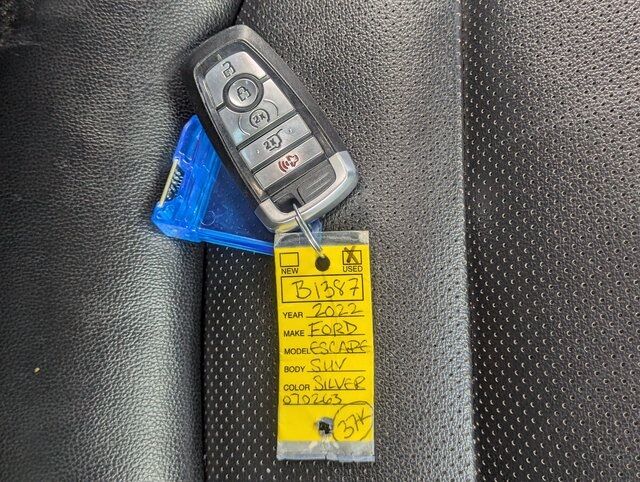 2x
2x
NEW USED
B1387
YEAR 2022
MAKE FORD
MODEL ESCAPE
BODY SUV
COLOR SILVER
070263
37K